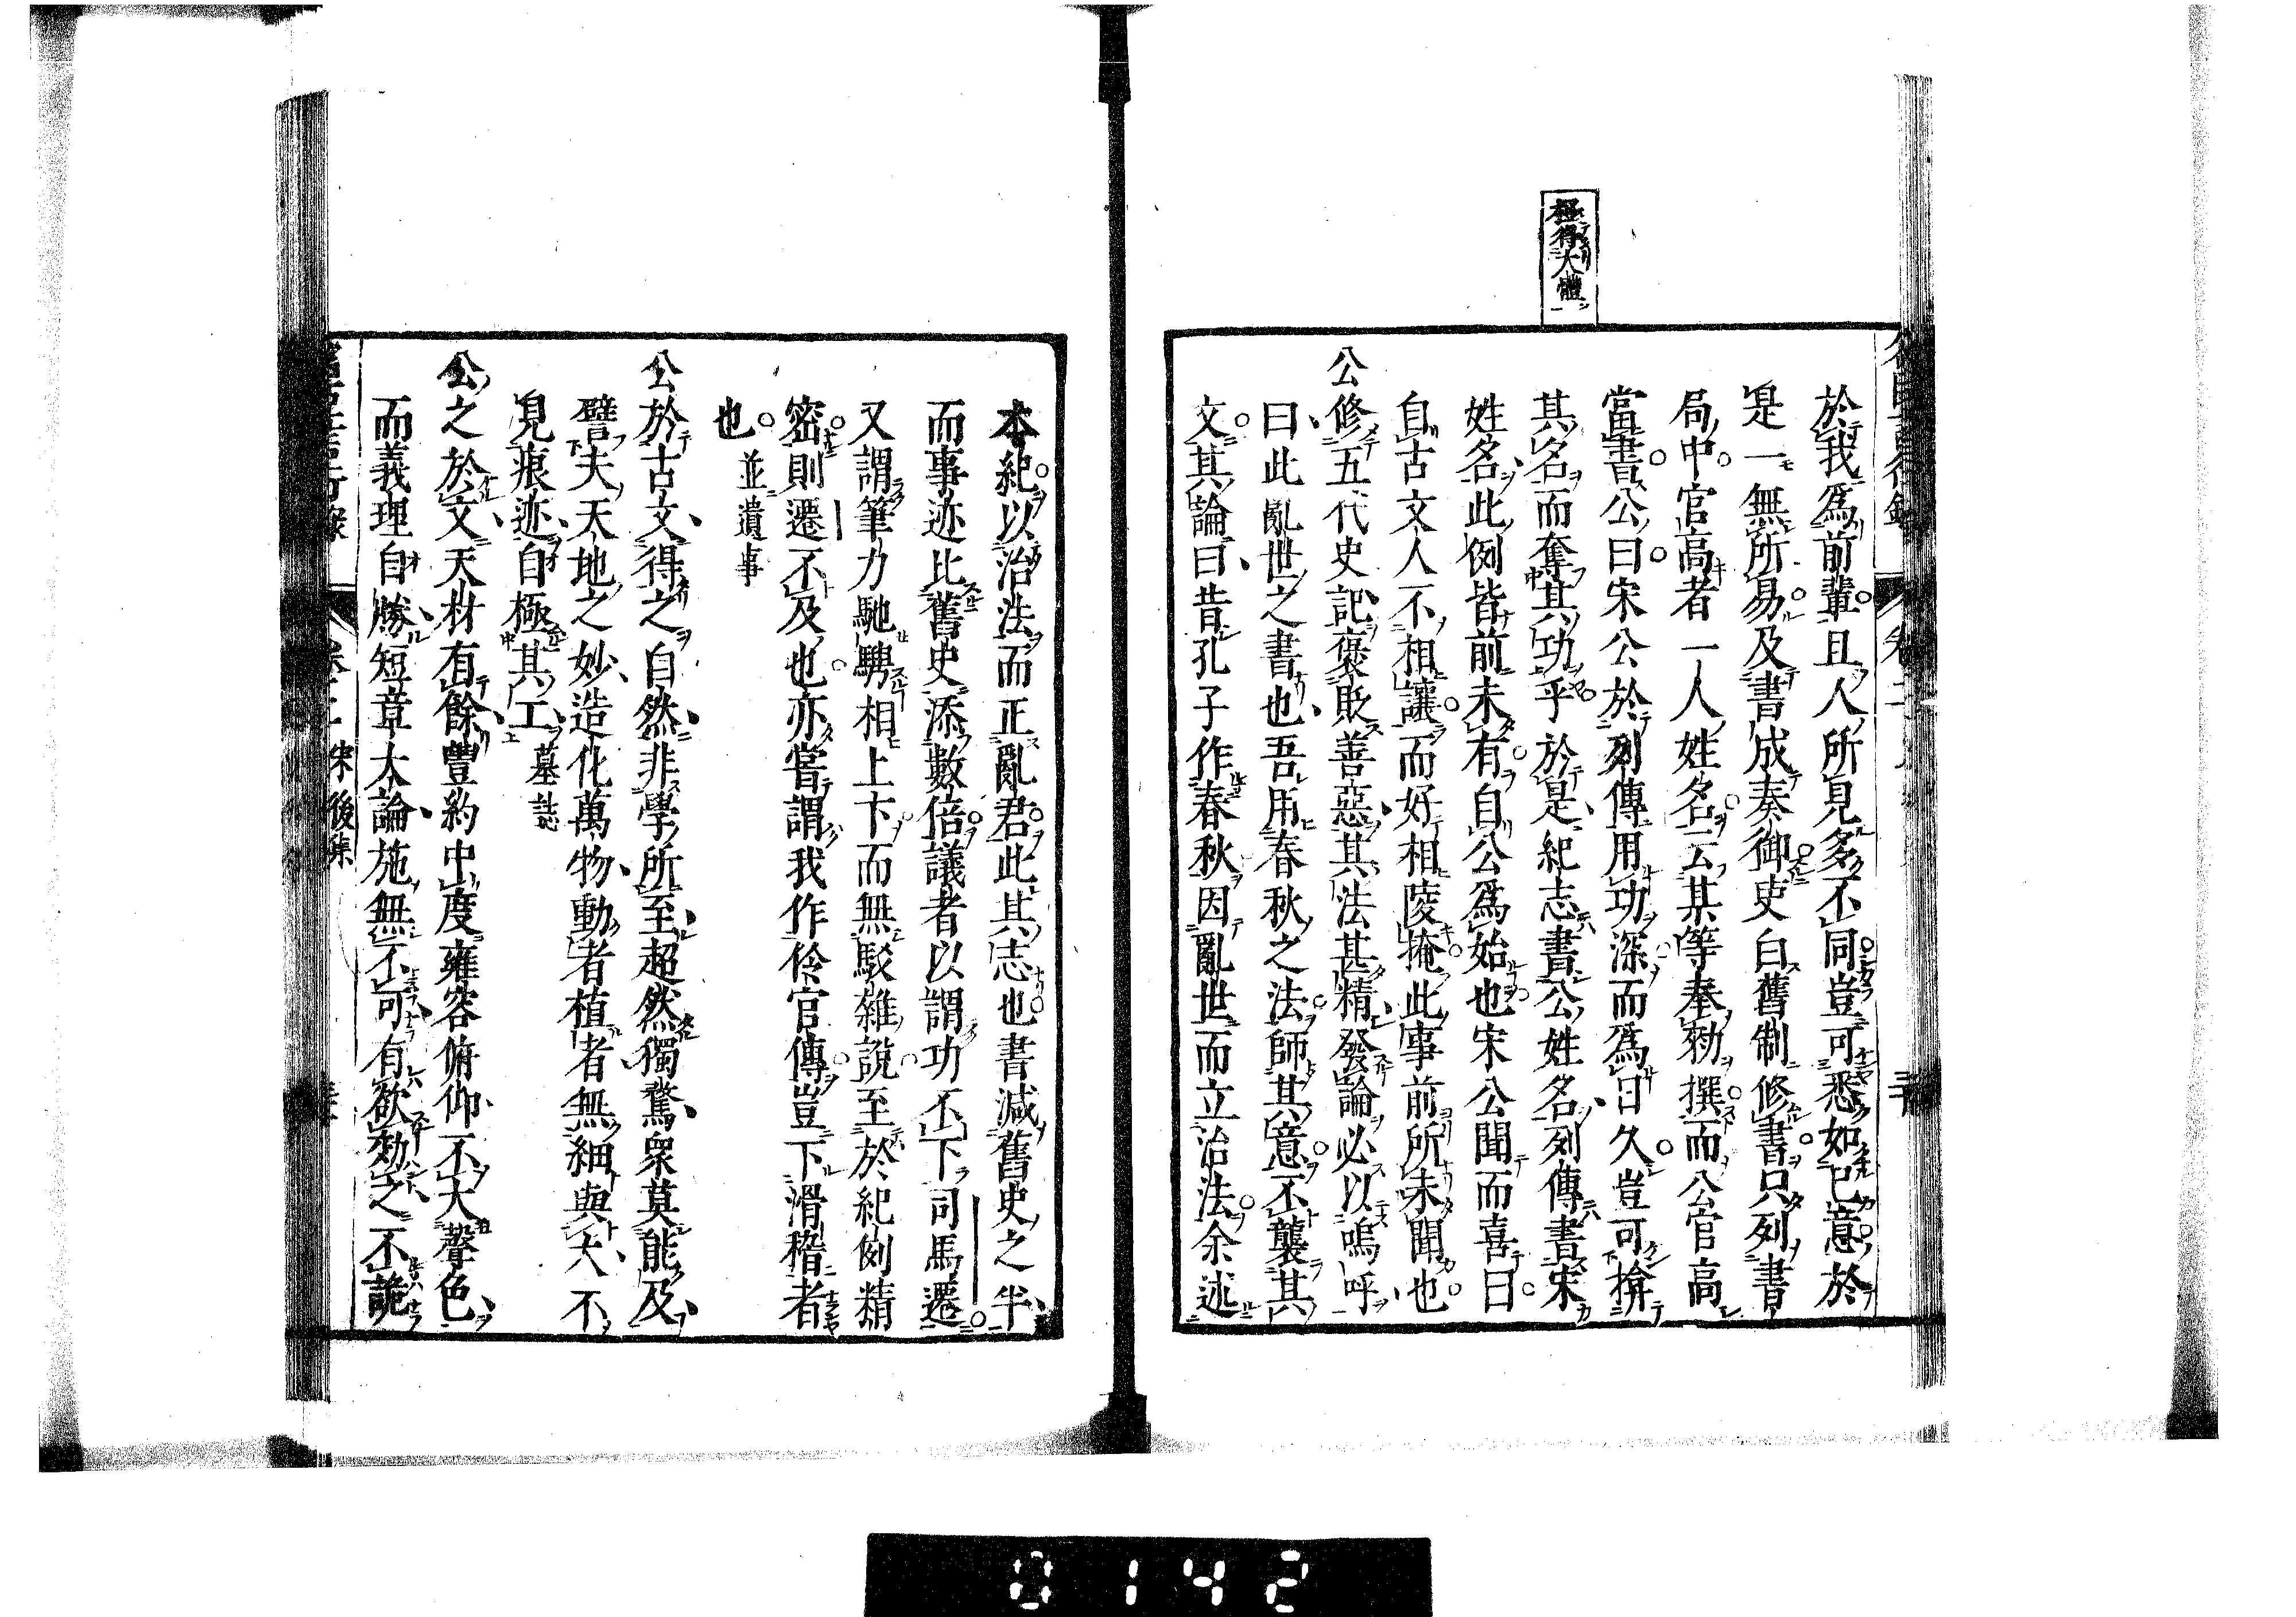 極得大體
於我爲前輩且人所見多不同豈可悉如己意於
是一無所易及書成奏御吏白舊制修書只列書
局中官高者一人姓名云某等奉勑撰而公官高
當書公曰宋公於列傳用功深而爲日久豈可揜
其名而奪其功乎於是紀志書公姓名列傳書宋
姓名此例皆前未有自公爲始也宋公聞而喜曰
自古文人不相讓而好相陵掩此事前所未聞也
公修五代史記褒貶善惡其法甚精發論必以嗚呼
曰此亂世之書也吾用春秋之法師其意不襲其
文其論曰昔孔子作春秋因亂世而立治法余述
本紀以治法而正亂君此其志也書減舊史之半
而事迹比舊史添數倍議者以謂功不下司馬遷
又謂筆力馳騁相上下而無駁雜說至於紀例精
密則遷不及也亦嘗謂我作伶官傳豈下滑稽者
也 並遺事
公於古文得之自然非學所至超然獨騖衆莫能及
譬夫天地之妙造化萬物動者植者無細與大不
見痕迹自極其工 墓誌
公之於文天材有餘豐約中度雍容俯仰不大聲色
而義理自勝短章大論施無不可有欲効之不詭
宋後集
0142